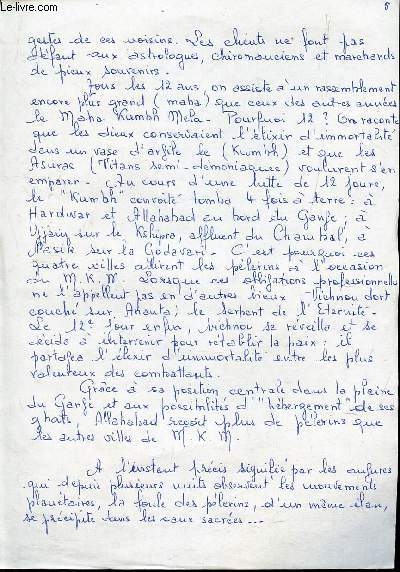 Le-livre.com
5
gestes de ces voisins. Les clients ne font pas
défaut aux astrologues, chiromanciens et marchands
de pieux souvenirs.
Tous les 12 ans, on assiste à un rassemblement
encore plus grand (maha) que ceux des autres années
le Maha Kumbh Mela - Pourquoi 12 ? On raconte
que les dieux conservaient l'élixir d'immortalité
dans un vase d'argile le (Kumbh) et que les
Asuras (Titans semi-démoniaques) voulurent s'en
emparer - Au cours d'une lutte de 12 jours,
le "Kumbh" convoité tomba 4 fois à terre : à
Hardwar et Allahabad au bord du Gange ; à
Ujjain sur le Kshipra, affluent du Chambal, à
Nasik sur la Godavari - C'est pourquoi ces
quatre villes attirent les pèlerins à l'occasion
du M.K.M. Lorsque ses obligations professionnelles
ne l'appellent pas en d'autres lieux - Vichnou dort
couché sur Ananta ; le serpent de l'Eternité -
Le 12e jour enfin, Vichnou se réveilla et se
décida à intervenir pour rétablir la paix : il
partagea l'élixir d'immortalité entre les plus
valeureux des combattants.
Grâce à sa position centrale dans la plaine
du Gange et aux possibilités d'"hébergement" de ses
ghats, Allahabad reçoit plus de pèlerins que
les autres villes de M.K.M.
A l'instant précis signifié par les augures
qui depuis plusieurs nuits observent les mouvements
planétaires, la foule des pèlerins, d'un même élan,
se précipite dans les eaux sacrées...